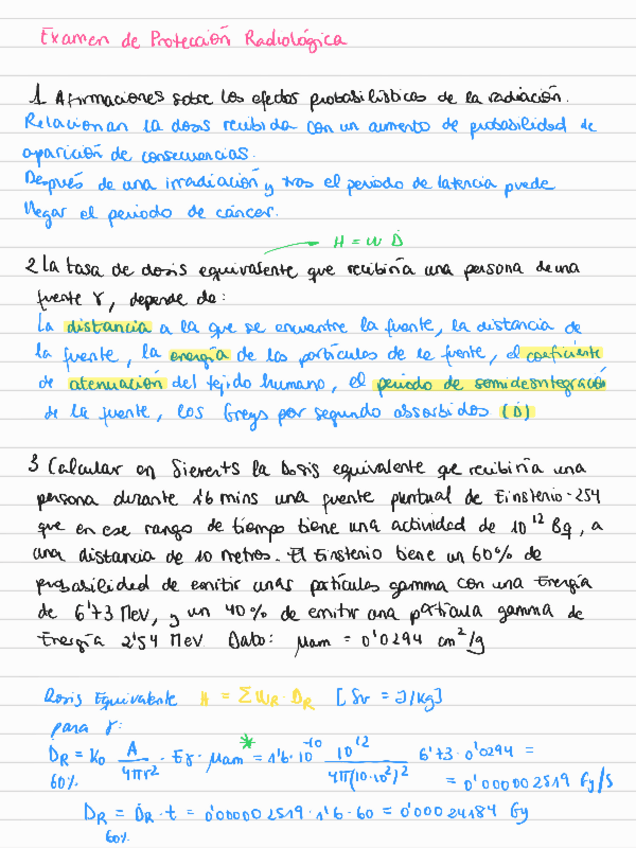 Examen de Protección Radiológica
1 Afirmaciones sobre los efectos probabilísticos de la radiación.
Relacionan la dosis recibida con un aumento de probabilidad de
aparición de consecuencias.
Después de una irradiación y tras el periodo de latencia puede
llegar el periodo de cáncer.
H = W Ḋ
2 La tasa de dosis equivalente que recibiría una persona de una
fuente γ, depende de:
La distancia a la que se encuentre la fuente, la distancia de
la fuente, la energía de las partículas de la fuente, el coeficiente
de atenuación del tejido humano, el periodo de semidesintegración
de la fuente, los Greys por segundo absorbidos (Ḋ)
3 Calcular en Sieverts la Dosis equivalente que recibiría una
persona durante 1'6 mins una fuente puntual de Einstenio-254
que en ese rango de tiempo tiene una actividad de 10¹² Bq, a
una distancia de 10 metros. El Einstenio tiene un 60% de
probabilidad de emitir unas partículas gamma con una Energía
de 6'73 MeV, y un 40% de emitir una partícula gamma de
Energía 2'54 MeV. Dato: μam = 0'0294 cm²/g
Dosis Equivalente H = Σ WR · DR [Sv = J/Kg]
para γ:
ḊR = K₀ A/4πr² · Eγ · μam * = 1'6·10⁻¹⁰ 10¹²/4π(10·10²)² 6'73 · 0'0294 =
60%. = 0'000002519 Gy/s
DR = ḊR · t = 0'000002519 · 1'6 · 60 = 0'00024184 Gy
60%.